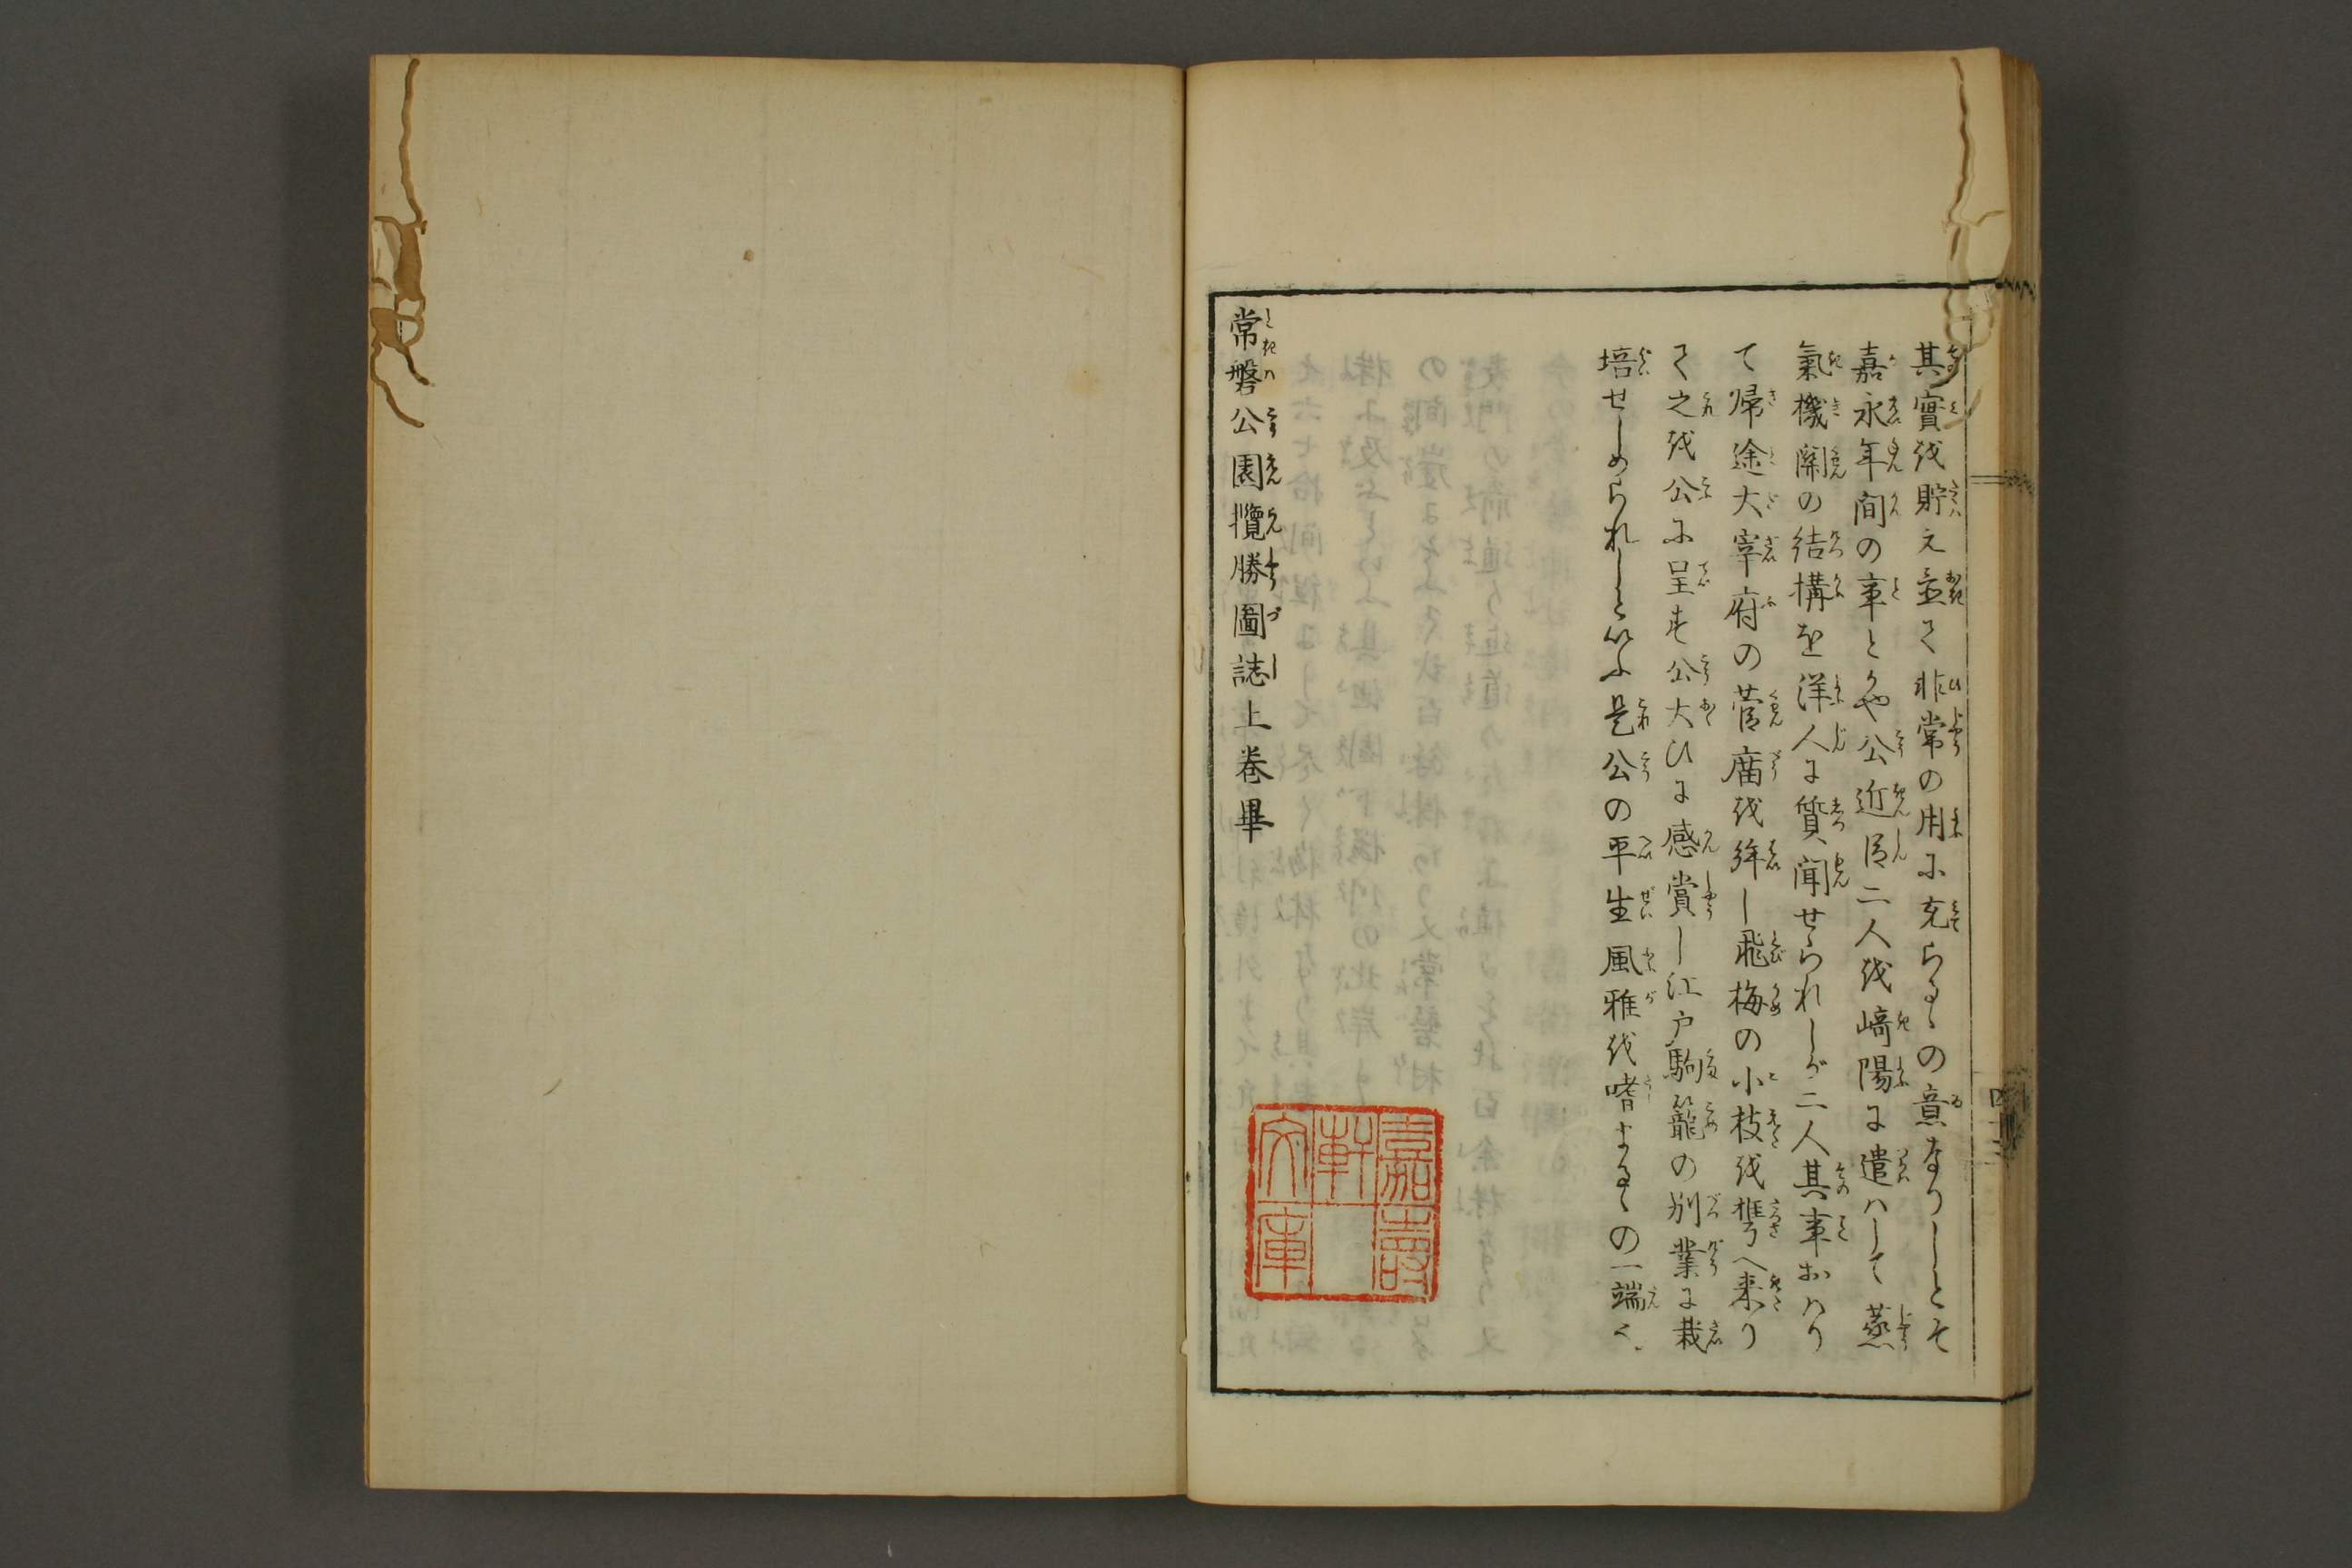 其實を貯え置て非常の用に充らるゝの意なりしとそ
嘉永年間の事とかや公近臣二人を崎陽に遣ハして蒸
氣機関の結構を洋人に質問せられしが二人其事おハり
て帰途大宰府の菅庿を拝し飛梅の小枝を携へ来り
て之を公に呈す公大ひに感賞し江戸駒籠の別業に栽
培せしめられしと以ふ是公の平生風雅を嗜まるゝの一端く
常磐公園攬勝圖誌上巻畢
嘉壽軒文庫